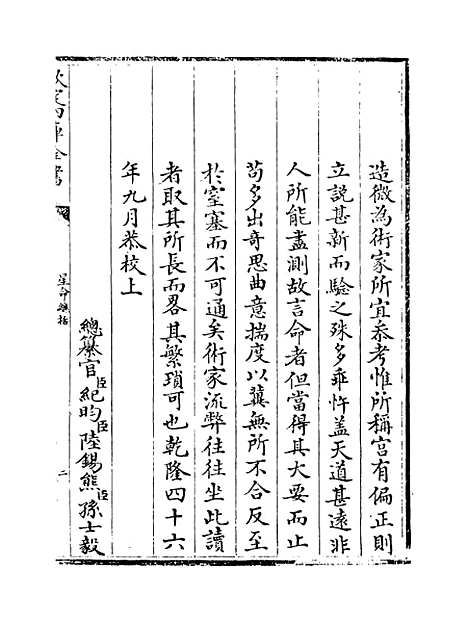 造微為術家所宜叅考惟所稱宫有偏正則
立説甚新而驗之殊多乖忤蓋天道甚遠非
人所能盡測故言命者但當得其大要而止
苟多出竒思曲意揣度以冀無所不合反至
於窒塞而不可通矣術家流弊往往坐此讀
者取其所長而畧其繁瑣可也乾隆四十六
年九月恭校上
總纂官臣紀昀臣陸錫熊臣孫士毅
欽定四庫全書
星命總括
二